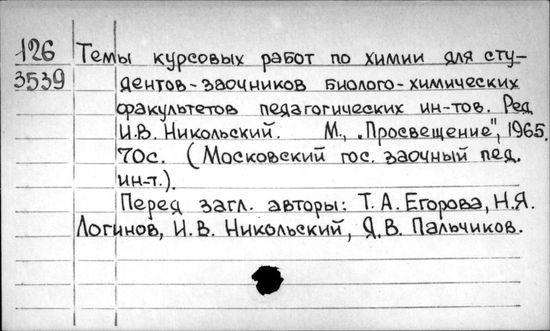 126 Темы курсовых работ по химии для сту-
3539 дентов-заочников биолого-химических
факультетов педагогических ин-тов. Ред.
И.В. Никольский. М., „Просвещение", 1965.
70с. (Московский гос. заочный пед.
ин-т.).
Перед загл. авторы: Т.А. Егорова, Н.Я.
Логинов, И.В. Никольский, Я.В. Пальчиков.